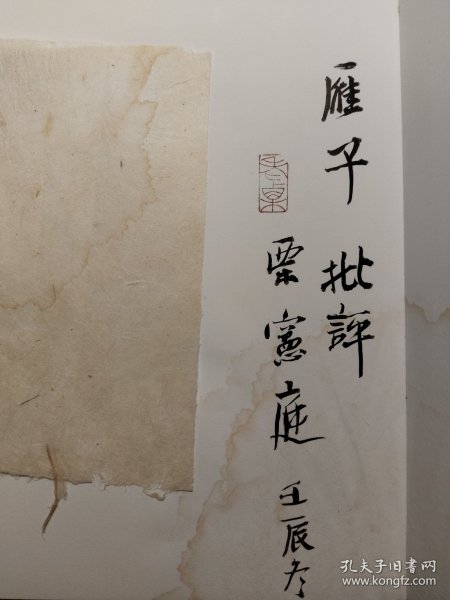 雁子 批評
栗憲庭 壬辰冬
孔夫子旧书网
www.kongfz.com